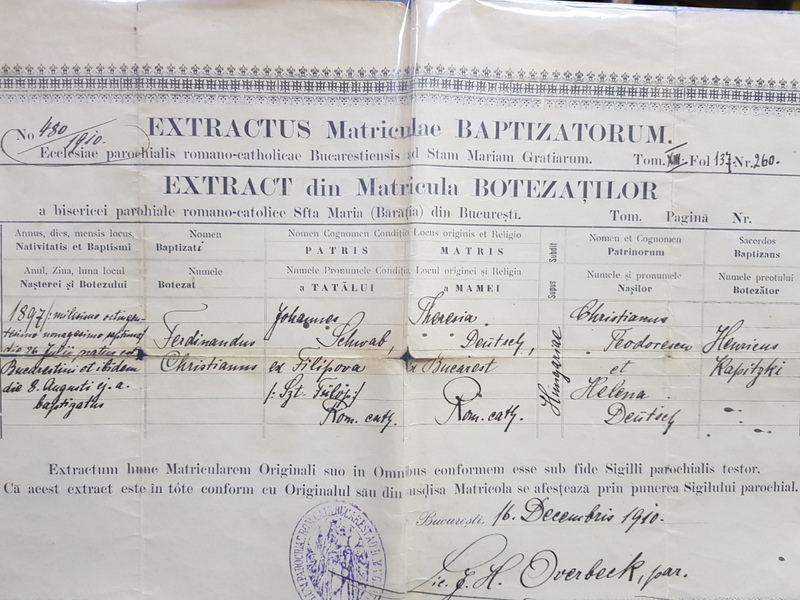 No 480/1910.
EXTRACTUS Matriculae BAPTIZATORUM.
Ecclesiae parochialis romano-catholicae Bucarestiensis ad Stam Mariam Gratiarum. Tom. XIII. Fol 137 Nr. 260.
EXTRACT din Matricula BOTEZAȚILOR
a bisericei parohiale romano-catolice Sfta Maria (Bărăția) din București. Tom. Pagina Nr.
Annus, dies, mensis locus, Nativitatis et Baptismi
Nomen Baptizati
Nomen Cognomen Conditio Locus originis et Religio
PATRIS MATRIS
Subdit
Nomen et Cognomen Patrinorum
Sacerdos Baptizans
Anul, Ziua, luna locul Nașterei și Botezului
Numele Botezat
Numele Pronumele Condiția, Locul originei și Religia
a TATĂLUI a MAMEI
Supus
Numele și pronumele Nașilor
Numele preotului Botezător
1897 /: milesimo octingen-
tesimo nonagesimo septimo/
die 26 Julii natus est
Bucarestini et ibidem
die 8. Augusti ej. a.
baptizatus
Ferdinandus
Christianus
Johannes
Schwab,
ex Filipova
/: Szt. Fülöp :/
Rom. cath.
Theresia
Deutsch,
ex Bucarest
Rom. cath.
Hungariae
Christianus
Teodorescu
et
Helena
Deutsch
Henricus
Kapitzki
Extractum hunc Matricularem Originali suo in Omnibus conformem esse sub fide Sigilli parochialis testor.
Că acest extract este în tóte conform cu Originalul său din susdisa Matricola se afestează prin punerea Sigilului parochial.
București, 16. Decembris 1910.
Lic. J. H. Overbeck, par.